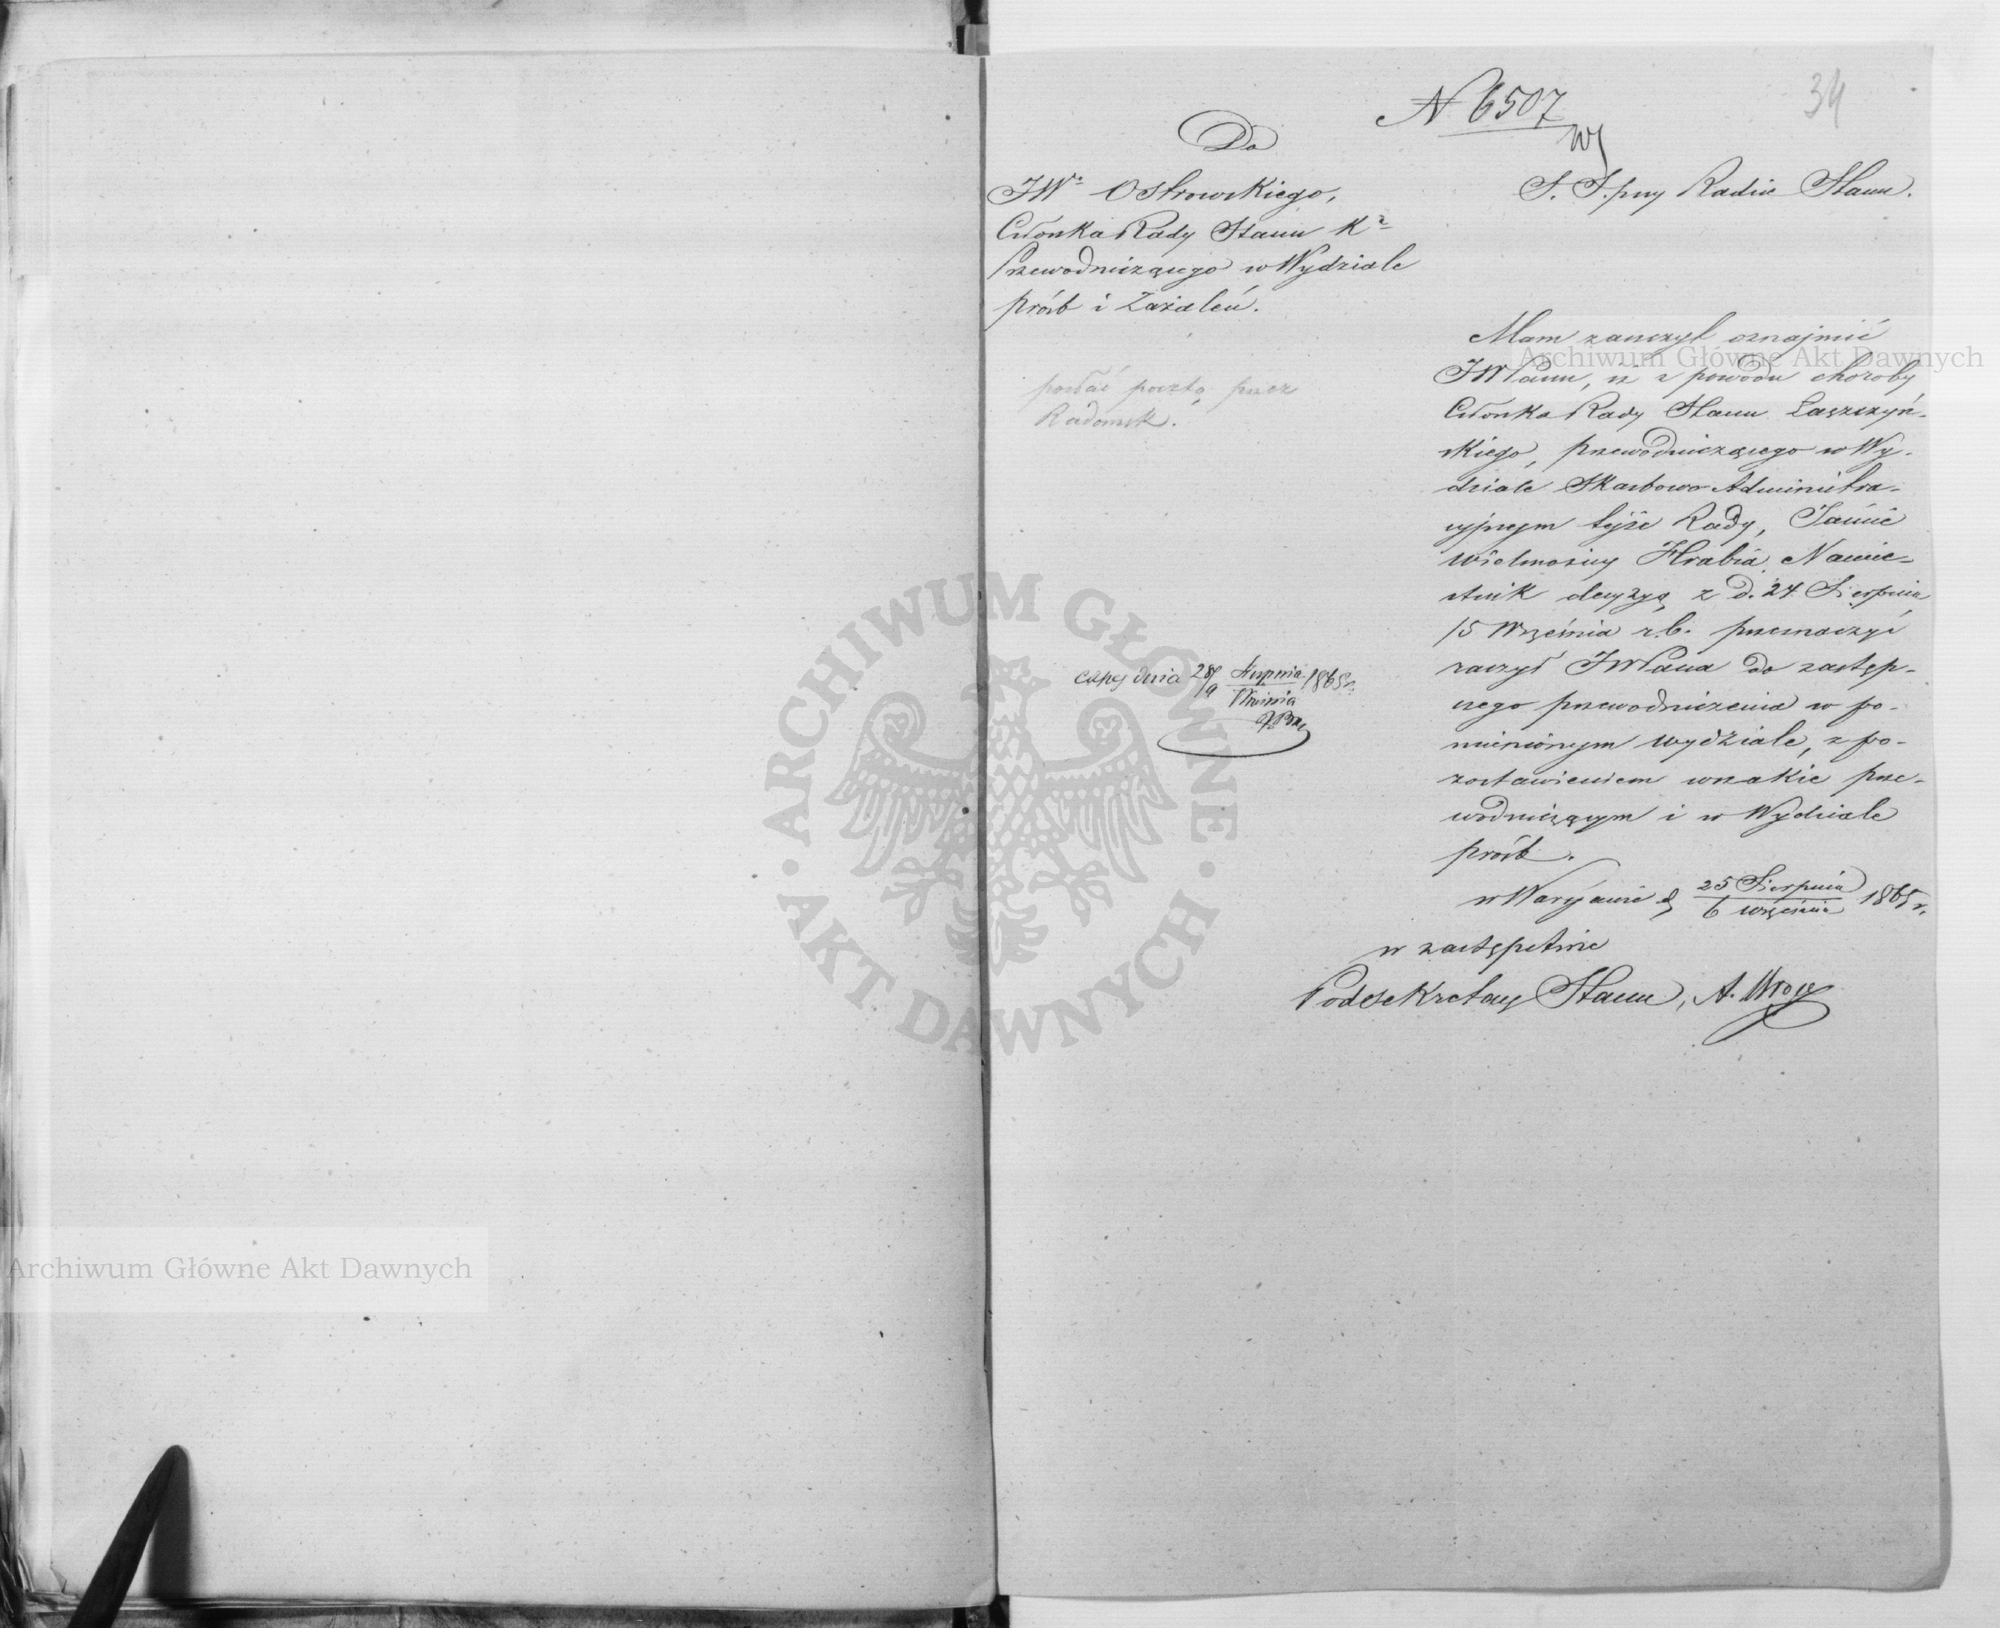 34
N 6507
Do
JW. Ostrowskiego,
Członka Rady Stanu K
Przewodniczącego w Wydziale
próśb i Zażaleń.
S. S. przy Radzie Stanu.
posłać pocztą przez
Radomsk.
Mam zaszczyt oznajmić
JWPanu, iż z powodu choroby
Członka Rady Stanu Łaszczyń-
skiego, przewodniczącego w Wy-
dziale Skarbowo Administra-
cyjnym tejże Rady, Jaśnie
Wielmożny Hrabia Namie-
stnik decyzją z d. 24 Sierpnia
/5 Września r.b. przeznaczyć
raczył JWPana do zastęp-
czego przewodniczenia w po-
mienionym wydziale, z po-
zostawieniem wszakże prze-
wodniczącym i w Wydziale
próśb.
w Warszawie d. 25 Sierpnia
6 września 1865 r.
w zastępstwie
Podsekretarz Stanu, A.
dnia 28/9 Sierpnia
Września 1865 r.
ARCHIWUM GŁÓWNE
AKT DAWNYCH
Archiwum Główne Akt Dawnych
Archiwum Główne Akt Dawnych